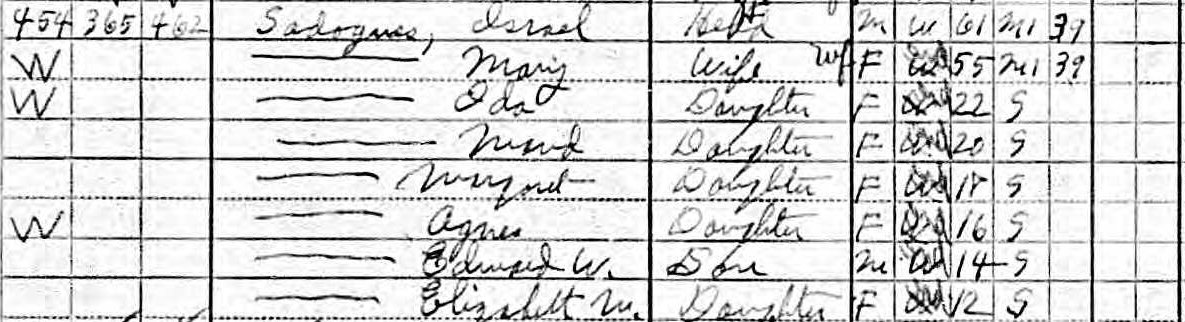 454 365 462 Sadogues, Israel Head M W 61 M1 39
W Mary Wife F W 55 M1 39
W Ida Daughter F W 22 S
Maud Daughter F W 20 S
Margaret Daughter F W 18 S
W Agnes Daughter F W 16 S
Edward W. Son M W 14 S
Elizabeth M. Daughter F W 12 S